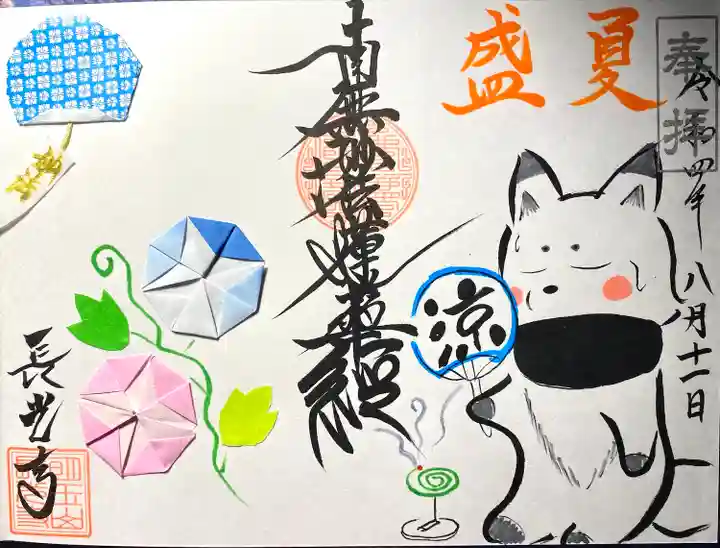 奉拝
令和四年八月十一日
夏
盛
涼
南無妙法蓮華経
長光寺